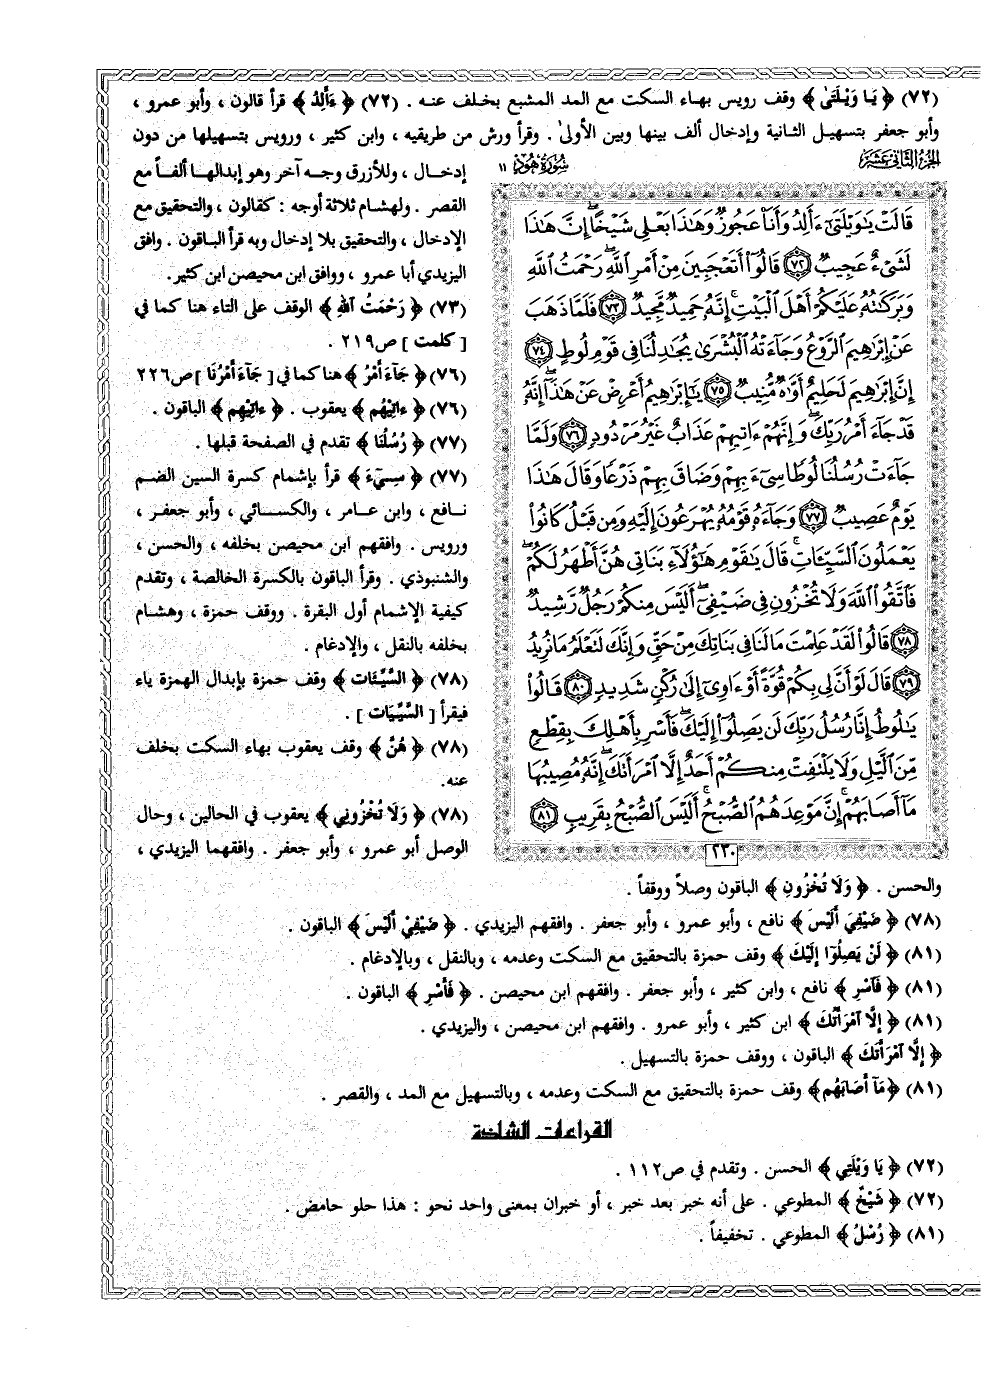 (٧٢) ﴿ يَا وَيْلَتَىٰ ﴾ وقف رويس بهاء السكت مع المد المشبع بخلف عنه . (٧٢) ﴿ ءَأَلِدُ ﴾ قرأ قالون ، وأبو عمرو ،
وأبو جعفر بتسهيل الثانية وإدخال ألف بينها وبين الأولىٰ . وقرأ ورش من طريقيه ، وابن كثير ، ورويس بتسهيلها من دون
إدخال ، وللأزرق وجه آخر وهو إبدالها ألفاً مع
القصر . ولهشام ثلاثة أوجه : كقالون ، والتحقيق مع
الإدخال ، والتحقيق بلا إدخال وبه قرأ الباقون . وافق
اليزيدي أبا عمرو ، ووافق ابن محيصن ابن كثير.
(٧٣) ﴿ رَحْمَتُ اللَّهِ ﴾ الوقف على التاء هنا كما في
[ كلمت ] ص٢١٩ .
(٧٦) ﴿ جَآءَ أَمْرُ ﴾ هنا كما في [ جَآءَ أَمْرُنَا ] ص٢٢٦
(٧٦) ﴿ ءاتِيْهُم ﴾ يعقوب . ﴿ ءاتِيْهِم ﴾ الباقون .
(٧٧) ﴿ رُسُلُنَا ﴾ تقدم في الصفحة قبلها .
(٧٧) ﴿ سِيٓءَ ﴾ قرأ بإشمام كسرة السين الضم
نافع ، وابن عامر ، والكسائي ، وأبو جعفر ،
ورويس . وافقهم ابن محيصن بخلفه ، والحسن ،
والشنبوذي . وقرأ الباقون بالكسرة الخالصة ، وتقدم
كيفية الإشمام أول البقرة . ووقف حمزة ، وهشام
بخلفه بالنقل ، والإدغام .
(٧٨) ﴿ السَّيِّئَات ﴾ وقف حمزة بإبدال الهمزة ياء
فيقرأ [ السَّيِّيَات ] .
(٧٨) ﴿ هُنَّ ﴾ وقف يعقوب بهاء السكت بخلف
عنه.
(٧٨) ﴿ وَلَا تُخْزُونِي ﴾ يعقوب في الحالين ، وحال
الوصل أبو عمرو ، وأبو جعفر . وافقهما اليزيدي ،
الجزء الثاني عشر
سورة هود ١١
قَالَتْ يَٰوَيْلَتَىٰٓ ءَأَلِدُ وَأَنَا۠ عَجُوزٌ وَهَٰذَا بَعْلِى شَيْخًا ۖ إِنَّ هَٰذَا
لَشَىْءٌ عَجِيبٌ ٧٢ قَالُوٓا۟ أَتَعْجَبِينَ مِنْ أَمْرِ ٱللَّهِ ۖ رَحْمَتُ ٱللَّهِ
وَبَرَكَٰتُهُۥ عَلَيْكُمْ أَهْلَ ٱلْبَيْتِ ۚ إِنَّهُۥ حَمِيدٌ مَّجِيدٌ ٧٣ فَلَمَّا ذَهَبَ
عَنْ إِبْرَٰهِيمَ ٱلرَّوْعُ وَجَآءَتْهُ ٱلْبُشْرَىٰ يُجَٰدِلُنَا فِى قَوْمِ لُوطٍ ٧٤
إِنَّ إِبْرَٰهِيمَ لَحَلِيمٌ أَوَّٰهٌ مُّنِيبٌ ٧٥ يَٰٓإِبْرَٰهِيمُ أَعْرِضْ عَنْ هَٰذَآ ۖ إِنَّهُۥ
قَدْ جَآءَ أَمْرُ رَبِّكَ ۖ وَإِنَّهُمْ ءَاتِيهِمْ عَذَابٌ غَيْرُ مَرْدُودٍ ٧٦ وَلَمَّا
جَآءَتْ رُسُلُنَا لُوطًا سِىٓءَ بِهِمْ وَضَاقَ بِهِمْ ذَرْعًا وَقَالَ هَٰذَا
يَوْمٌ عَصِيبٌ ٧٧ وَجَآءَهُۥ قَوْمُهُۥ يُهْرَعُونَ إِلَيْهِ وَمِن قَبْلُ كَانُوا۟
يَعْمَلُونَ ٱلسَّيِّـَٔاتِ ۚ قَالَ يَٰقَوْمِ هَٰٓؤُلَآءِ بَنَاتِى هُنَّ أَطْهَرُ لَكُمْ ۖ
فَٱتَّقُوا۟ ٱللَّهَ وَلَا تُخْزُونِ فِى ضَيْفِىٓ ۖ أَلَيْسَ مِنكُمْ رَجُلٌ رَّشِيدٌ
٧٨ قَالُوا۟ لَقَدْ عَلِمْتَ مَا لَنَا فِى بَنَاتِكَ مِنْ حَقٍّ وَإِنَّكَ لَتَعْلَمُ مَا نُرِيدُ
٧٩ قَالَ لَوْ أَنَّ لِى بِكُمْ قُوَّةً أَوْ ءَاوِىٓ إِلَىٰ رُكْنٍ شَدِيدٍ ٨٠ قَالُوا۟
يَٰلُوطُ إِنَّا رُسُلُ رَبِّكَ لَن يَصِلُوٓا۟ إِلَيْكَ ۖ فَأَسْرِ بِأَهْلِكَ بِقِطْعٍ
مِّنَ ٱلَّيْلِ وَلَا يَلْتَفِتْ مِنكُمْ أَحَدٌ إِلَّا ٱمْرَأَتَكَ ۖ إِنَّهُۥ مُصِيبُهَا
مَآ أَصَابَهُمْ ۚ إِنَّ مَوْعِدَهُمُ ٱلصُّبْحُ ۚ أَلَيْسَ ٱلصُّبْحُ بِقَرِيبٍ ٨١
٢٣٠
والحسن . ﴿ وَلَا تُخْزُونِ ﴾ الباقون وصلاً ووقفاً .
(٧٨) ﴿ ضَيْفِيَ أَلَيْسَ ﴾ نافع ، وأبو عمرو ، وأبو جعفر . وافقهم اليزيدي . ﴿ ضَيْفِيْ أَلَيْسَ ﴾ الباقون .
(٨١) ﴿ لَنْ يَصِلُوٓا إِلَيْكَ ﴾ وقف حمزة بالتحقيق مع السكت وعدمه ، وبالنقل ، وبالإدغام .
(٨١) ﴿ فَآسْرِ ﴾ نافع ، وابن كثير ، وأبو جعفر . وافقهم ابن محيصن . ﴿ فَأَسْرِ ﴾ الباقون .
(٨١) ﴿ إِلَّا آمْرَأَتُكَ ﴾ ابن كثير ، وأبو عمرو . وافقهم ابن محيصن ، واليزيدي .
﴿ إِلَّا آمْرَأَتَكَ ﴾ الباقون ، ووقف حمزة بالتسهيل .
(٨١) ﴿مَآ أَصَابَهُم﴾ وقف حمزة بالتحقيق مع السكت وعدمه ، وبالتسهيل مع المد ، والقصر .
القراءات الشاذة
(٧٢) ﴿ يَا وَيْلَتِي ﴾ الحسن . وتقدم في ص١١٢ .
(٧٢) ﴿ شَيْخٌ ﴾ المطوعي . على أنه خبر بعد خبر ، أو خبران بمعنى واحد نحو : هذا حلو حامض .
(٨١) ﴿ رُسْلُ ﴾ المطوعي . تخفيفاً .